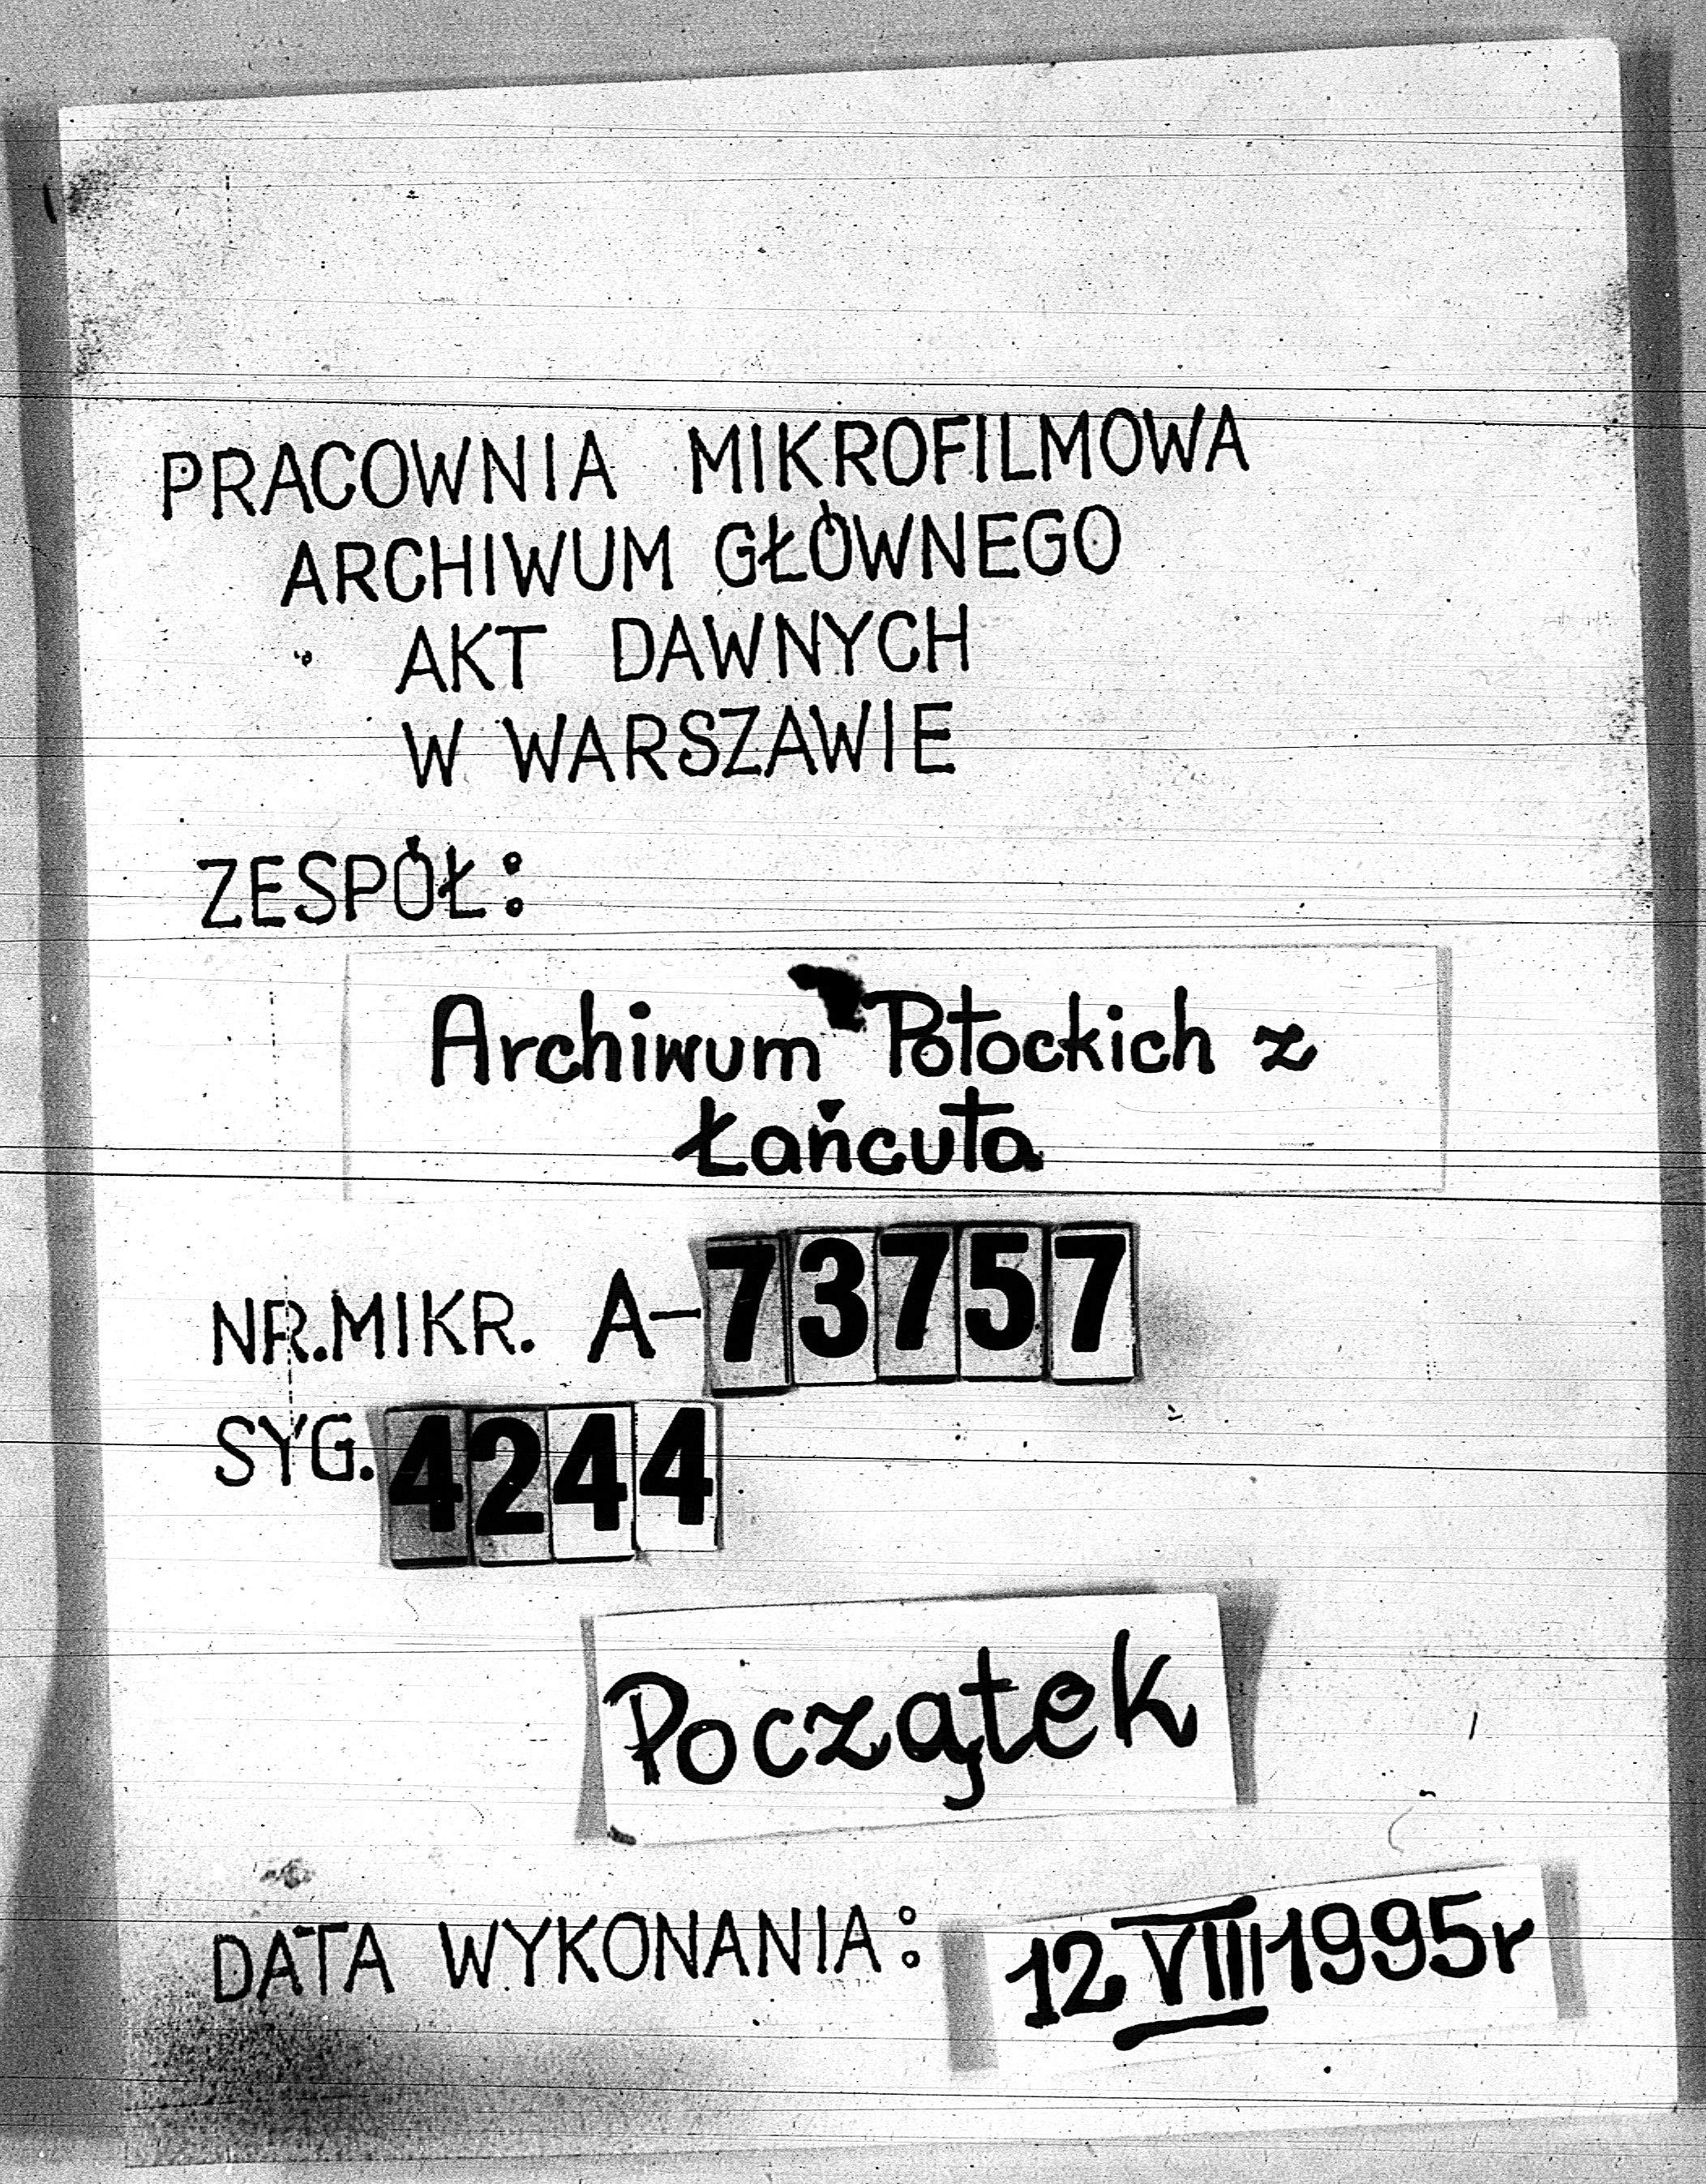 PRACOWNIA MIKROFILMOWA
ARCHIWUM GŁÓWNEGO
AKT DAWNYCH
W WARSZAWIE
ZESPÓŁ:
Archiwum Potockich z
Łańcuta
NR.MIKR. A-73757
SYG. 4244
Początek
DATA WYKONANIA: 12 VIII 1995r